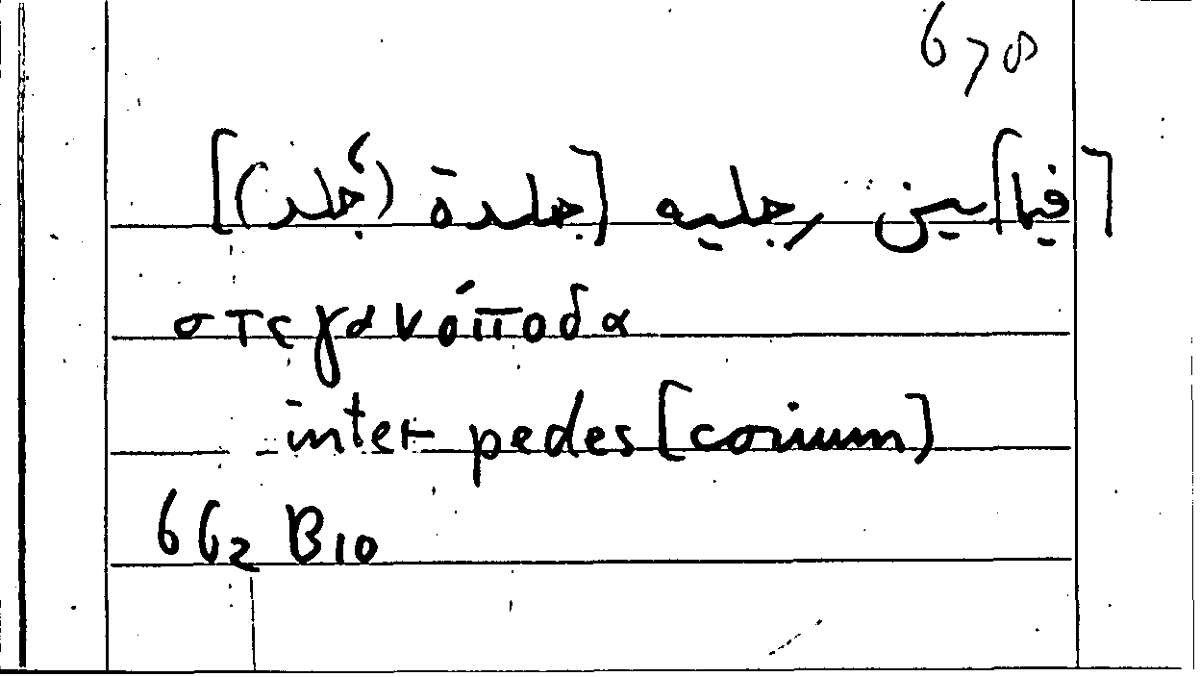 678
[فيما] بين رجليه [جلدة (جُلد)]
στεγανόποδα
inter pedes [corium]
662 B10